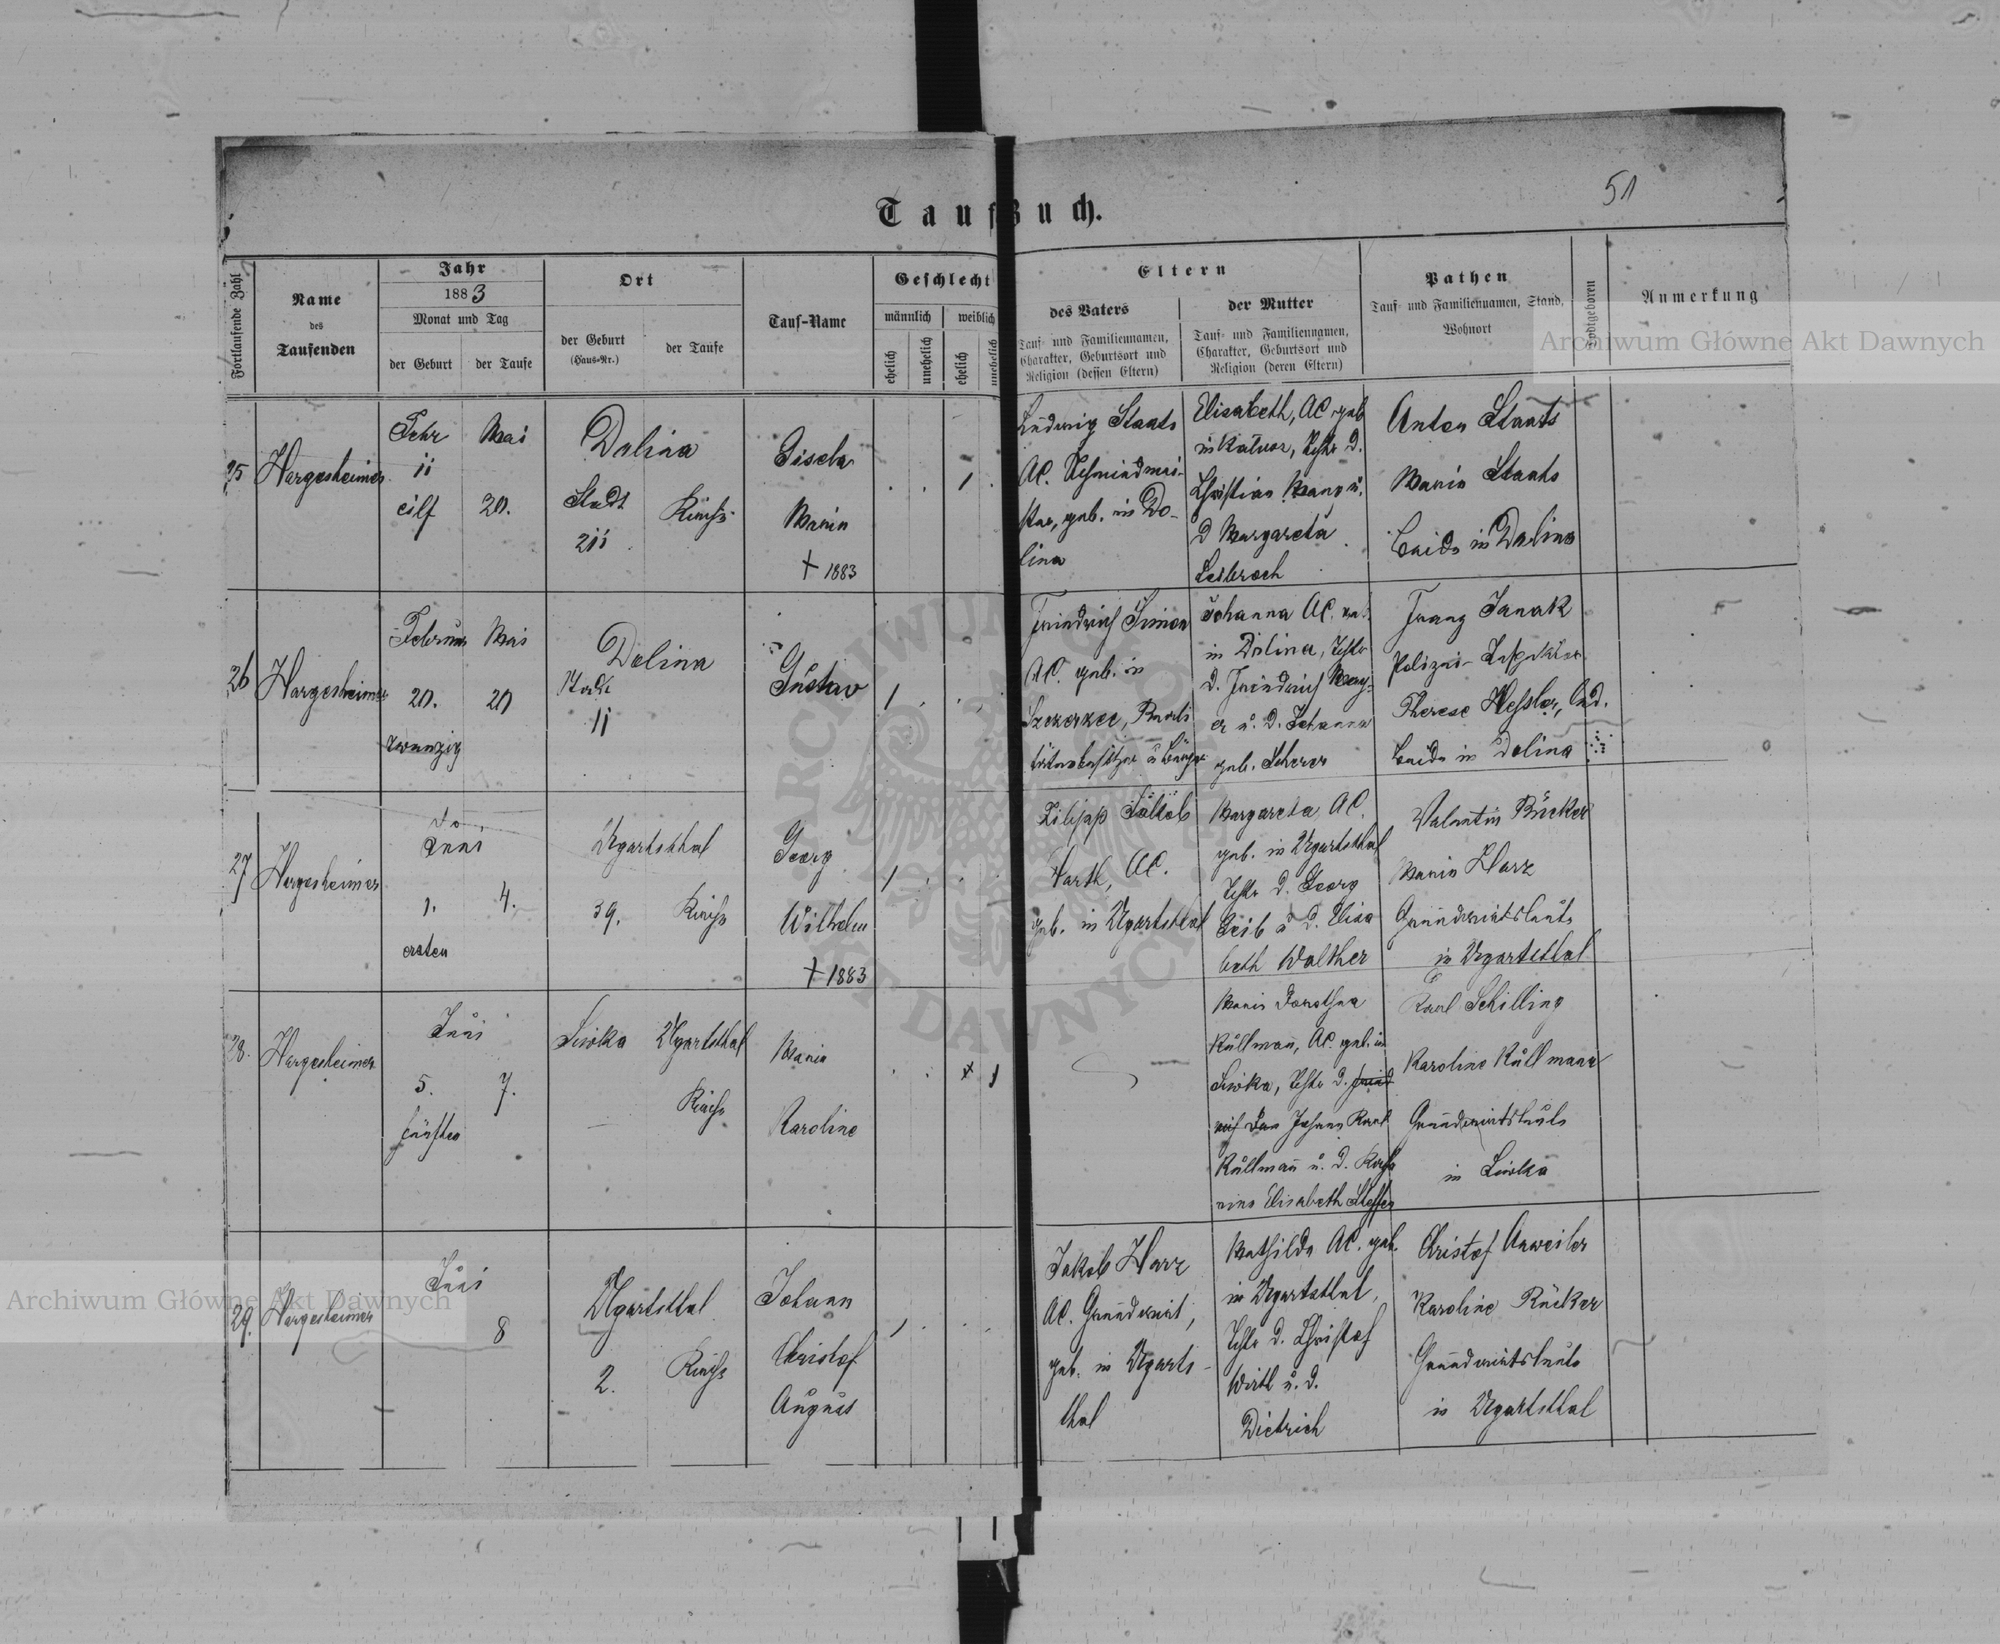 51
Taufbuch.
Fortlaufende Zahl
Name
des
Taufenden
Jahr
1883
Monat und Tag
der Geburt
der Taufe
Ort
der Geburt
(Haus-Nr.)
der Taufe
Tauf-Name
Geschlecht
männlich
weiblich
ehelich
unehelich
ehelich
unehelich
Eltern
des Vaters
Tauf- und Familiennamen,
Charakter, Geburtsort und
Religion (dessen Eltern)
der Mutter
Tauf- und Familiennamen,
Charakter, Geburtsort und
Religion (deren Eltern)
Pathen
Tauf- und Familiennamen, Stand,
Wohnort
Todtgeboren
Anmerkung
Archiwum Główne Akt Dawnych
25
Hargesheimer
Febr
11
eilf
Mai
20.
Dolina
Stadt
211
Kirche
Gisela
Maria
+ 1883
Ludwig Staats
AC. Schmiedmei-
ster, geb. in Do-
lina
Elisabeth, AC. geb
in Kalusz, Tchtr d.
Christian Mang u.
d Margareta
Leibrock
Anton Staats
Maria Staats
beide in Dolina
26
Hargesheimer
Februar
20.
zwanzig
Mai
20
Dolina
Stadt
11
Gustav
Friedrich Simon
AC. geb. in
Szczerzec, Reali-
tätenbesitzer u Bürger
Johanna AC.
in Dolina, Tchtr
d. Friedrich May-
er u. d. Johanna
geb. Scherer
Franz Janak
Polizei-
Therese Hessler, led.
beide in Dolina
27
Hargesheimer
Juni
1.
ersten
4.
Ugartsthal
39.
Kirche
Georg
Wilhelm
+ 1883
Filipp Jakob
Harth, AC.
geb. in Ugartsthal
Margareta AC.
geb. in Ugartsthal
Tchtr d. Georg
Geib u d. Elisa
beth Walther
Valentin Rücker
Maria Harz
Grundwirtsleute
in Ugartsthal
28.
Hargesheimer
Juni
5.
fünften
7.
Siwka
Ugartsthal
Kirche
Maria
Karoline
Maria Dorothea
Kullmann, AC. geb. in
Siwka, Tchtr d.
Johann Karl
Kullmann u. d. Katha
rina Elisabeth Steffen
Karl Schilling
Karoline Kullmann
Grundwirtsleute
in Siwka
29.
Hargesheimer
Juni
8
Ugartsthal
2.
Kirche
Johann
Christof
August
Jakob Harz
AC. Grundwirt,
geb. in Ugarts-
thal
Mathilde AC. geb.
in Ugartsthal,
Tchtr d. Christof
Wirtl u. d.
Dietrich
Christof Anweiler
Karoline Rücker
Grundwirtsleute
in Ugartsthal
Archiwum Główne Akt Dawnych
ARCHIWUM GŁÓWNE AKT DAWNYCH